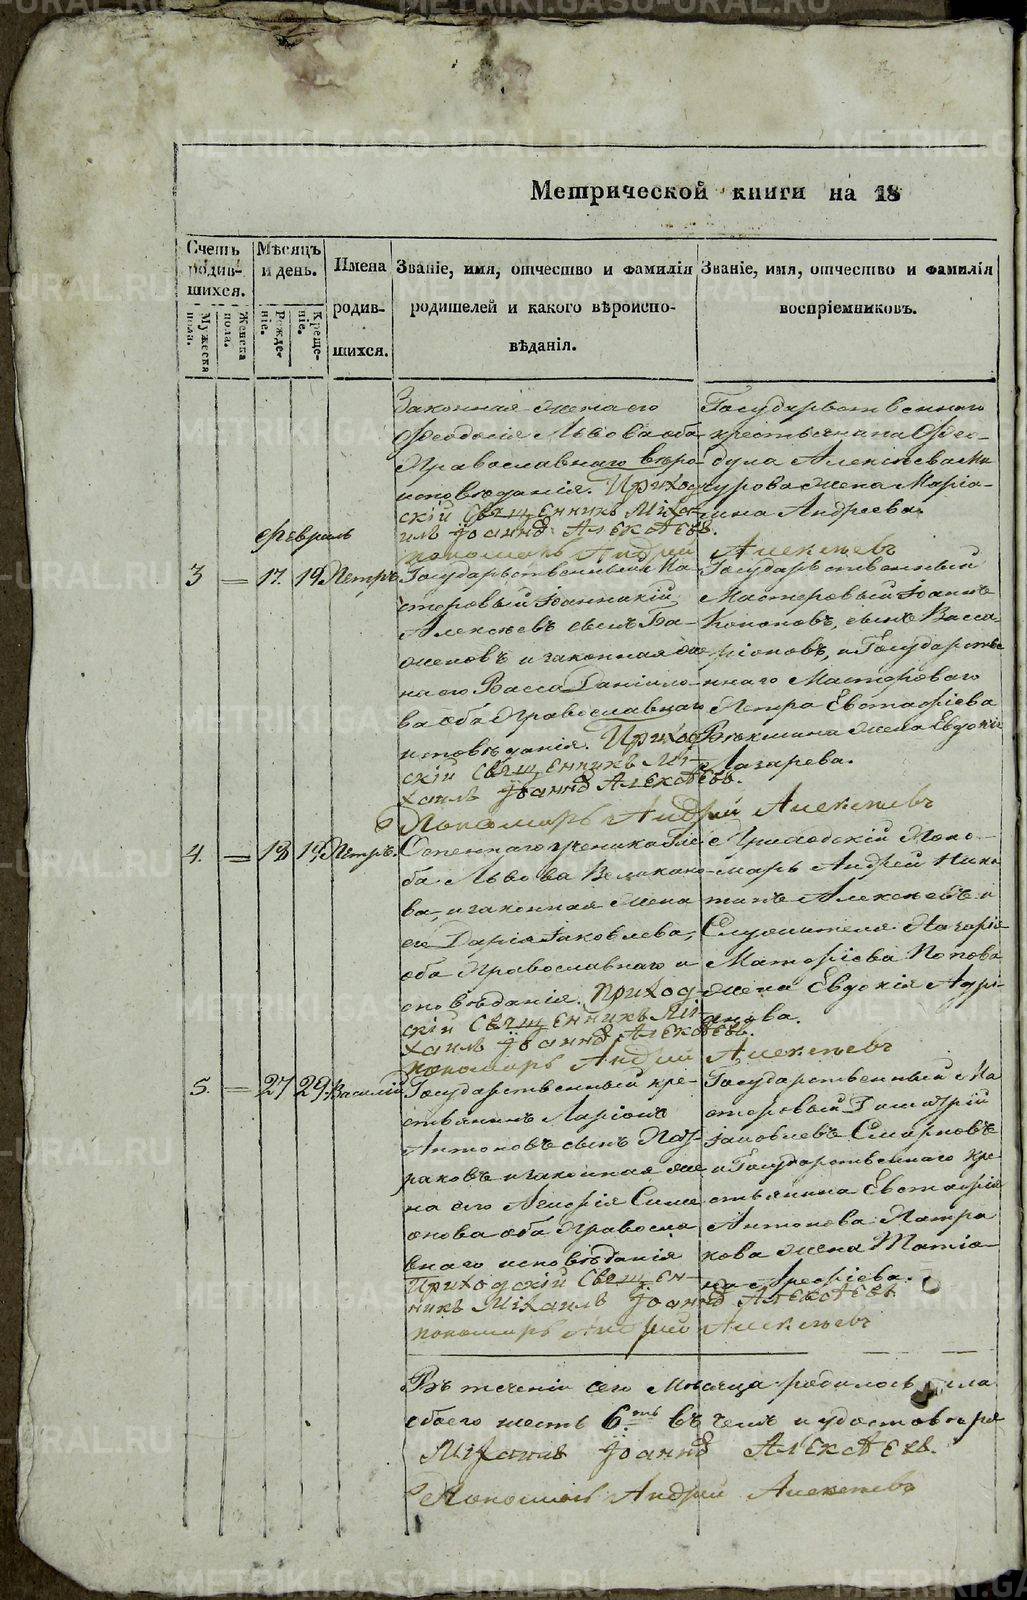 METRIKI.GASO-URAL.RU
Метрической книги на 18
Счетъ родившихся.
Мужеска пола.
Женска пола.
Мѣсяцъ и день.
Рожденіе.
Крещеніе.
Имена родившихся.
Званіе, имя, отчество и фамилія родителей и какого вѣроисповѣданія.
Званіе, имя, отчество и фамилія воспріемниковъ.
Законная жена его
Ѳеодосія Львова оба
Православнаго вѣро
исповѣданія. Приход
скій Священникъ Миха
илъ Іоаннъ Алексѣевъ.
пономарь Андрей Алексѣевъ
Государственнаго
крестьянина Ѳео-
дула Алексѣева
жена Марія-
мна Андреева.
Февраль
3 = 17. 19. Петръ.
Государственный Ма
стеровый Іоанникій
Алексѣевъ сынъ Ба-
женовъ и законная же
на его Васса Даніило-
ва оба Православнаго
исповѣданія. Приход
скій Священникъ Ми-
хаилъ Іоаннъ Алексѣевъ.
Пономарь Андрей Алексѣевъ
Государственный
Мастеровый Іоаннъ
Кононовъ, сынъ Васса-
ріоновъ, и Государстве
ннаго Мастероваго
Петра Евстафіева
жена Евдокія
Лазарева.
4. = 18 19. Петръ.
ученика Глѣ
ба Львова
ва, и законная жена
его Дарія Іаковлева,
оба Православнаго и
сповѣданія. Приход-
скій Священникъ Ми
хаилъ Іоаннъ Алексѣевъ.
пономарь Андрей Алексѣевъ
Приходскій Поно-
марь Андрей
Алексѣевъ и
Служителя
Попова
жена Евдокія Адрі-
анова.
5. = 27 29. Василій
Государственный кре-
стьянинъ Ларіонъ
Антоновъ сынъ Пат-
раковъ и законная же
на его Симе
онова оба Правосла
внаго исповѣданія
Приходскій Священ-
никъ Михаилъ Іоаннъ Алексѣевъ
пономарь Андрей Алексѣевъ
Государственный Ма
стеровый Димитрій
Іаковлевъ Смирновъ
и Государственнаго кре
стьянина Евстафія
Антонова Патра
кова жена Татіа-
на Арефіева.
Въ теченіи сего Мѣсяца родилось пола
обоего шесть 6.ть въ чемъ и удостовѣря
Михаилъ Іоаннъ Алексѣевъ.
Пономарь Андрей Алексѣевъ